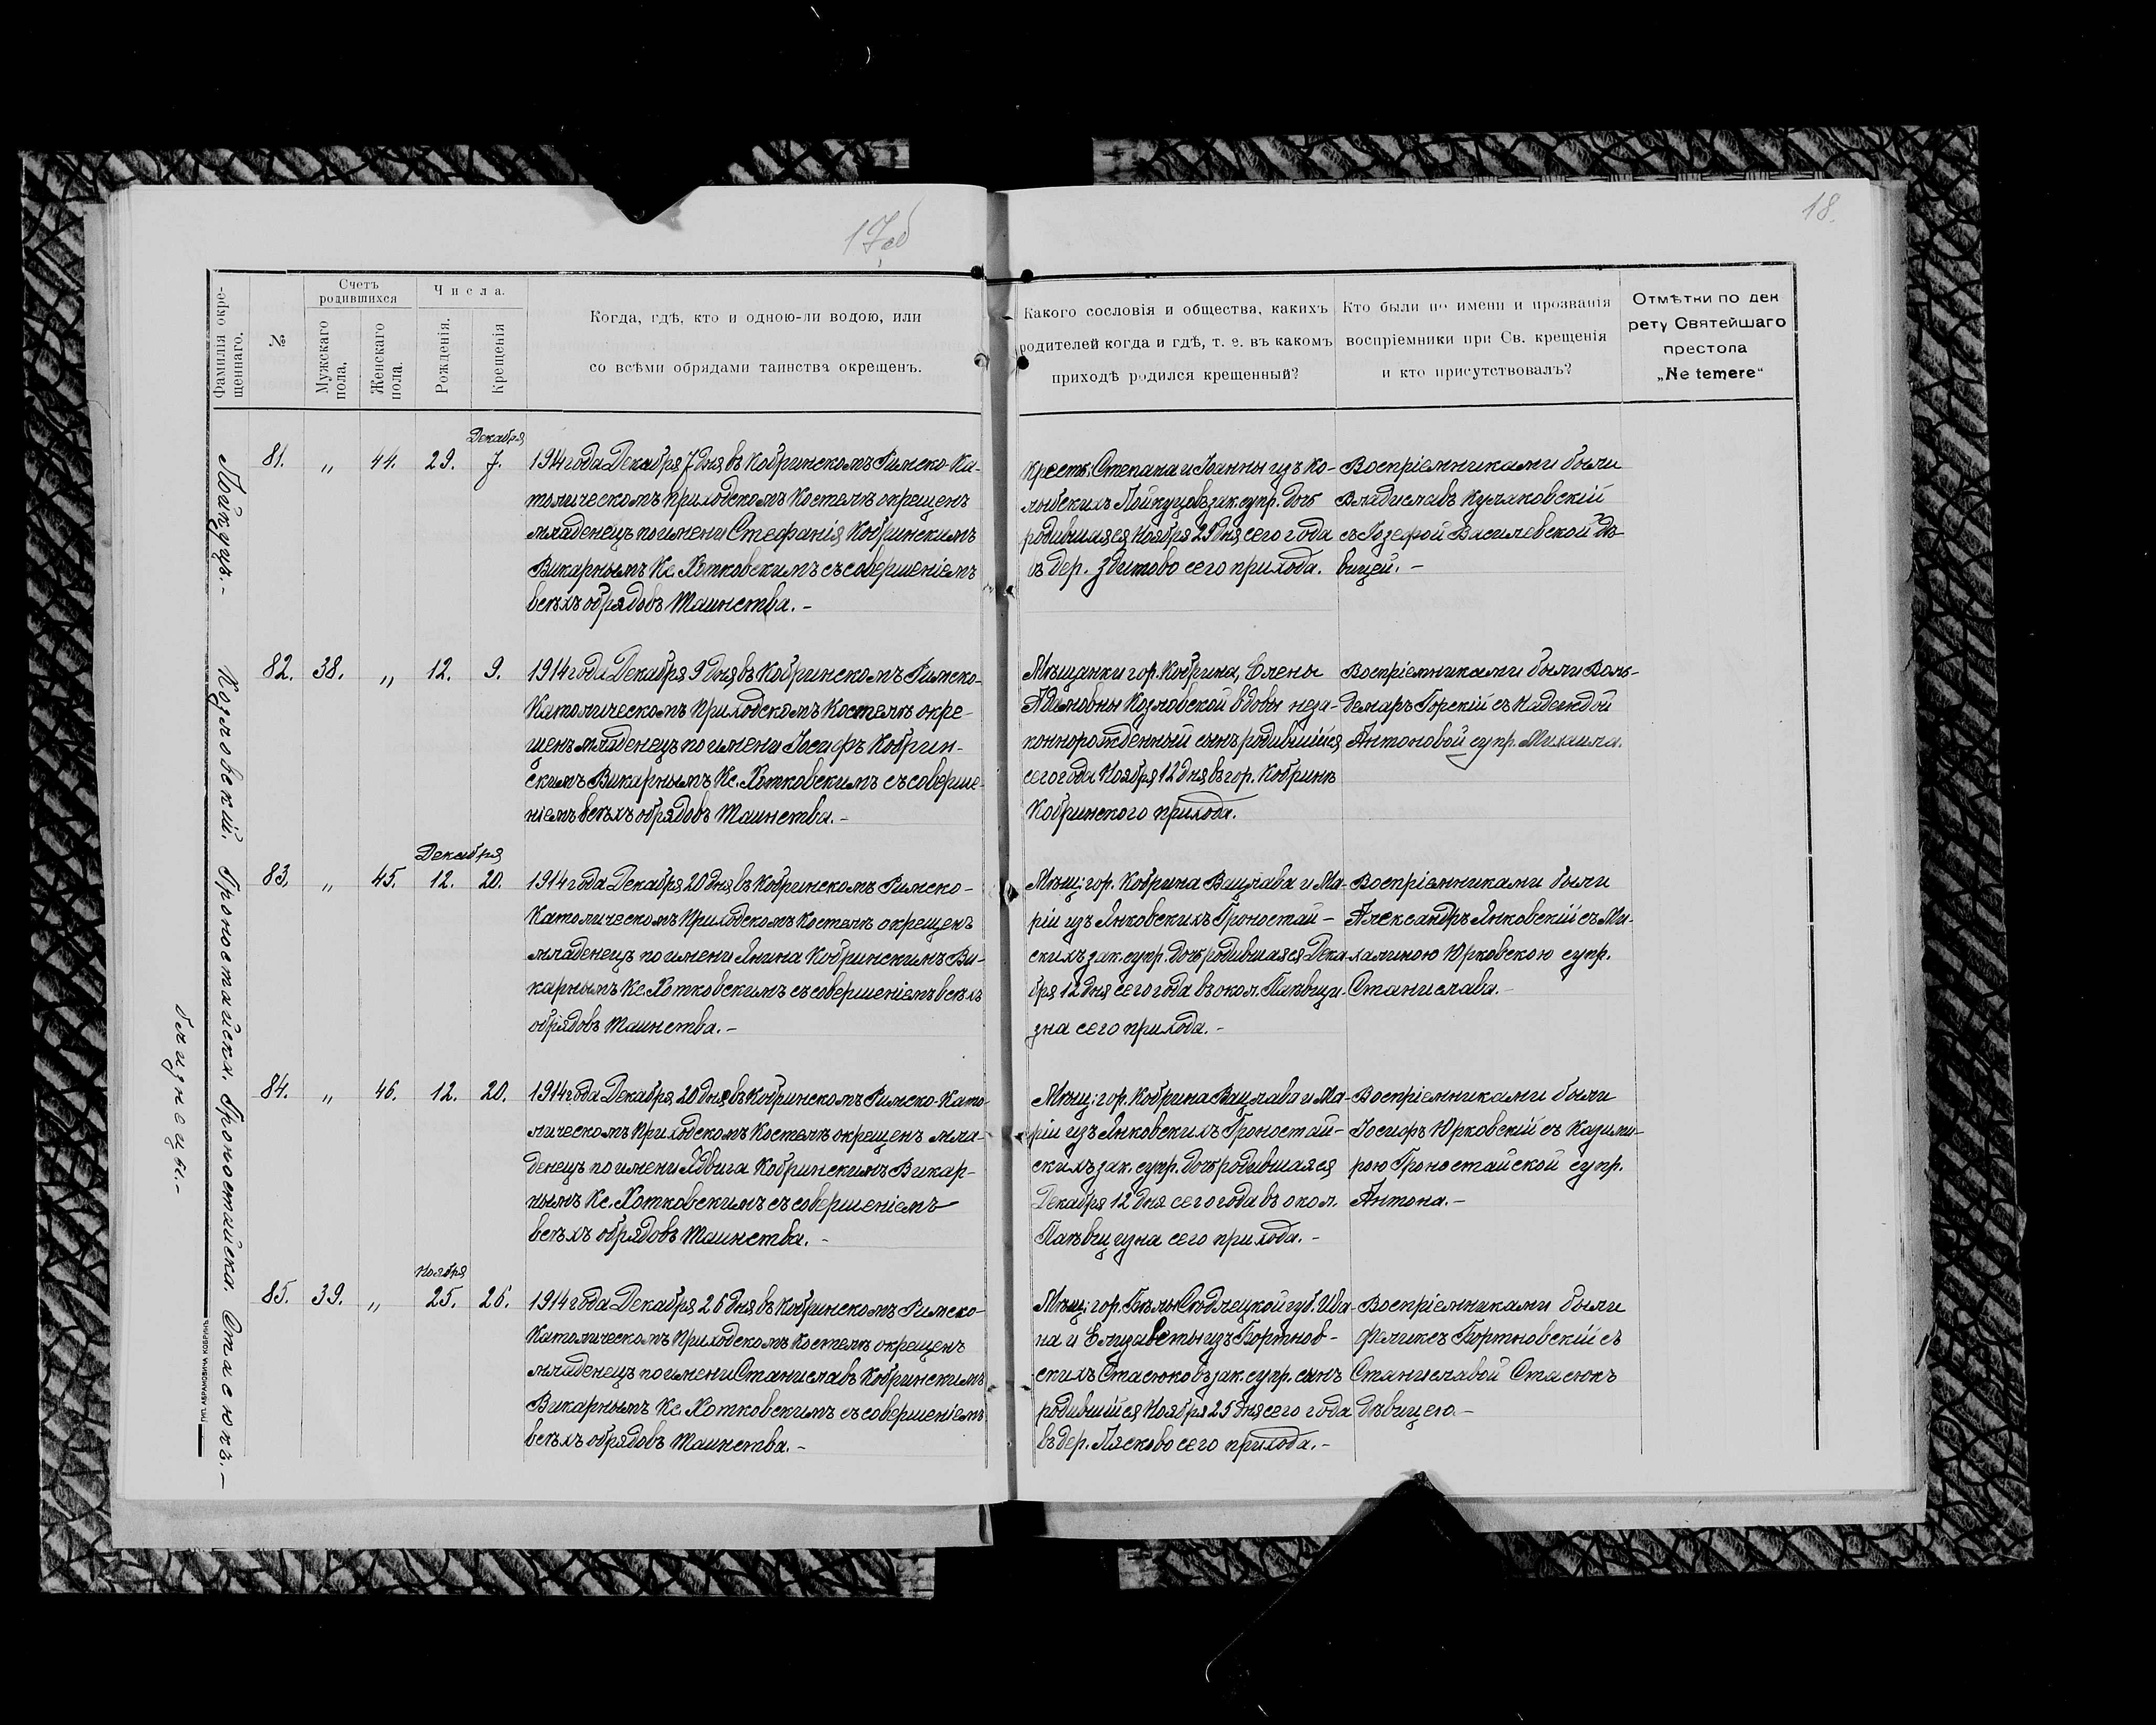 17об
18.
Фамилія окре-
щеннаго.
№
Счетъ
родившихся
Мужскаго
пола.
Женскаго
пола.
Числа.
Рожденія.
Крещенія
Когда, гдѣ, кто и одною-ли водою, или
со всѣми обрядами таинства окрещенъ.
Какого сословія и общества, какихъ
родителей когда и гдѣ, т. е. въ какомъ
приходѣ родился крещенный?
Кто были по имени и прозванія
воспріемники при Св. крещенія
и кто присутствовалъ?
Отмѣтки по дек
рету Святейшаго
престола
„Ne temere“
Пойкуцъ.-
81. „ 44. 29. Декабря 7.
1914 года Декабря 7 дня въ Кобринскомъ Римско-Ка-
толическомъ приходскомъ Костелѣ окрещенъ
младенецъ по имени Стефанія Кобринскимъ
Викарнымъ Кс. Хотковскимъ съ совершеніемъ
всѣхъ обрядовъ Таинства.-
Крестъ: Степана и Іоанны изъ Ко-
родившаяся Ноября 29 дня сего года
въ дер. Здитово сего прихода.
Воспріемниками были
Владиславъ Кулаковскій
съ Іозефой Василевской дѣ-
вицей.-
Козловскій.
82. 38. „ 12. 9.
1914 года Декабря 9 дня въ Кобринскомъ Римско-
Католическомъ Приходскомъ Костелѣ окре-
щенъ младенецъ по имени Іосифъ Кобрин-
скимъ Викарнымъ Кс. Хотковскимъ съ соверше-
ніемъ всѣхъ обрядовъ Таинства.-
Мѣщанки гор. Кобрина, Елены
Адамовны Козловской вдовы неза-
коннорожденный сынъ родившійся
сего года Ноября 12 дня въ гор. Кобринѣ
Кобринского прихода.
Воспріемниками были Воль-
демаръ Горскій съ Надеждой
Антоновой супр. Михаила.
Гроностайска.
83. „ 45. Декабря 12. 20.
1914 года Декабря 20 дня въ Кобринскомъ Римско-
Католическомъ Приходскомъ Костелѣ окрещенъ
младенецъ по имени Янина Кобринскимъ Ви-
карнымъ Кс. Хотковскимъ съ совершеніемъ всѣхъ
обрядовъ Таинства.-
Мѣщ: гор. Кобрина Вацлава и Ма-
ріи изъ Янковскихъ Гроностай-
скихъ зак. супр. дочь родившаяся Дека-
бря 12 дня сего года въ окол. Паѣвщи-
зна сего прихода.-
Воспріемниками были
Александръ Янковскій съ Ми-
халиною Юрковскою супр.
Станислава.-
Гроностайска.
близнецы.-
84. „ 46. 12. 20.
1914 года Декабря 20 дня въ Кобринскомъ Римско-Като-
лическомъ Приходскомъ Костелѣ окрещенъ мла-
денецъ по имени Ядвига Кобринскимъ Викар-
нымъ Кс. Хотковскимъ съ совершеніемъ
всѣхъ обрядовъ Таинства.-
Мѣщ: гор. Кобрина Вацлава и Ма-
ріи изъ Янковскихъ Гроностай-
скихъ зак. супр. дочь родившаяся
Декабря 12 дня сего года въ окол.
Паѣвщизна сего прихода.-
Воспріемниками были
Іосифъ Юрковскій съ Казими-
рою Гроностайской супр.
Антона.-
Стасюкъ.-
85. 39. „ Ноября 25. 26.
1914 года Декабря 26 дня въ Кобринскомъ Римско-
Католическомъ Приходскомъ Костелѣ окрещенъ
младенецъ по имени Станиславъ Кобринскимъ
Викарнымъ Кс. Хотковскимъ съ совершеніемъ
всѣхъ обрядовъ Таинства.-
Мѣщ: гор. Бѣлы Сѣдлецкой губ. Ива-
на и Елизаветы изъ Бортнов-
скихъ Стасюковъ зак. супр. сынъ
родившійся Ноября 25 дня сего года
въ дер. Пясково сего прихода.-
Воспріемниками были
Феликсъ Бортновскій съ
Станиславой Стасюкъ
Дѣвицею.-
ТИП. АБРАМОВИЧА КОБРИНЪ